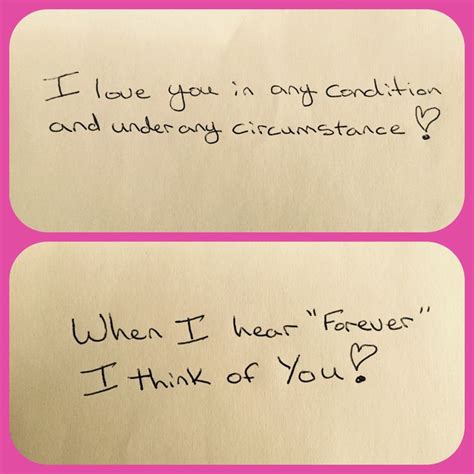 I love you in any condition
and under any circumstance!
When I hear "Forever"
I think of You!